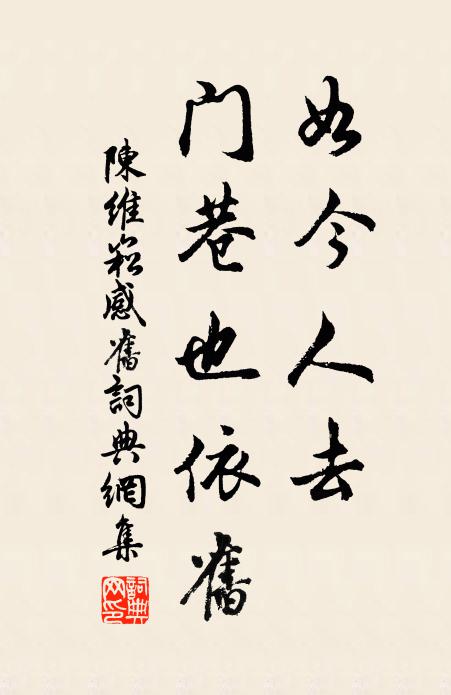 如今人去
门巷也依舊
陳維崧感舊詞典網集
詞典
网印